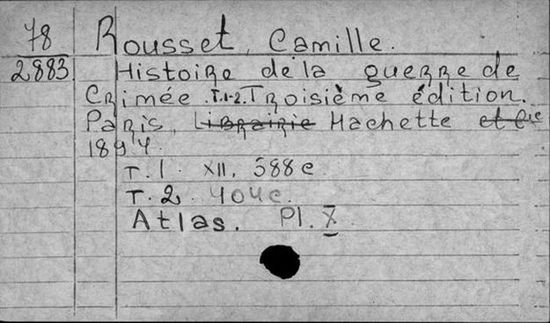 78 Rousset, Camille.
2883 Histoire de la guerre de
Crimée. T.1-2. Troisième édition.
Paris, Librairie Hachette et Cie
1894.
T. 1. XII, 588 c
T. 2. 404 c.
Atlas. Pl. X